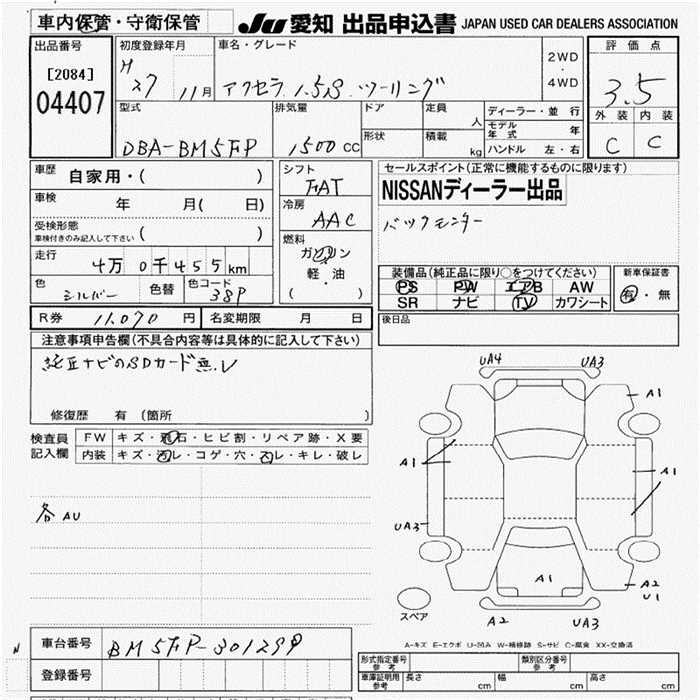 車内保管・守衛保管
JU 愛知 出品申込書 JAPAN USED CAR DEALERS ASSOCIATION
出品番号
[2084]
04407
初度登録年月
H 27 11月
車名・グレード
アクセラ 1.5S ツーリング
2WD
・
4WD
評価点
3.5
外装 内装
C C
型式
DBA-BM5FP
排気量
1500 CC
ドア
形状
定員
人
積載
kg
ディーラー・並行
モデル年式 年
ハンドル 左・右
車歴
自家用・( )
車検
年 月( 日)
受検形態
車検付きのみ記入して下さい ( )
走行
4万0千455km
色
シルバー
色替
色コード
38P
シフト
FAT
冷房
AAC
燃料
ガソリン
軽・油
( )
セールスポイント(正常に機能するものに限ります)
NISSANディーラー出品
バックモニター
装備品(純正品に限り○をつけてください)
PS PW エアB AW
SR ナビ TV カワシート
新車保証書
有・無
R券 11,070 円
名変期限 月 日
後日品
注意事項申告欄(不具合内容等は具体的に記入して下さい)
純正ナビのSDカード無し
修復歴 有 (箇所 )
検査員
記入欄
FW キズ・飛石・ヒビ割・リペア跡・X要
内装 キズ・汚レ・コゲ・穴・スレ・キレ・破レ
各AU
UA4 UA3
A1
A1 A1
UA3
A1
A2
U1
A2 UA3
スペア
A-キズ E-エクボ U-凹み W-補修跡 S-サビ C-腐食 XX-交換済
N
車台番号
BM5FP-301299
登録番号
形式指定番号
参考
類別区分番号
参考
車庫証明用
参考
長さ cm 幅 cm 高さ cm